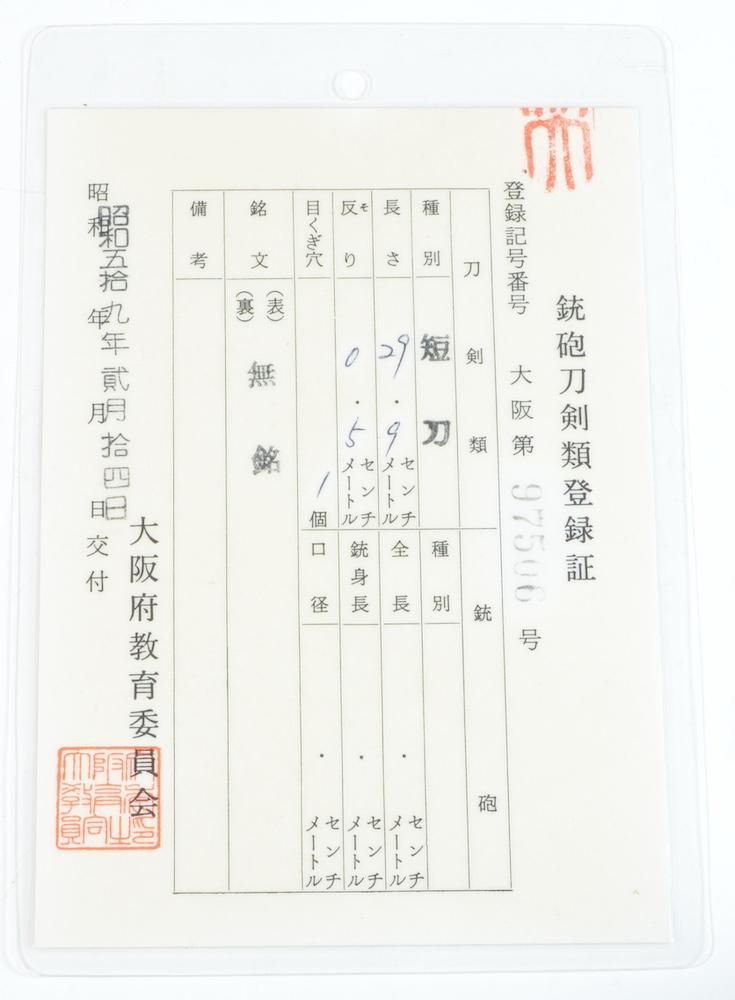 銃砲刀剣類登録証
登録記号番号 大阪第 97506 号
刀剣類
種別 短刀
長さ 29.9 センチメートル
反り ソモ 0.5 センチメートル
目くぎ穴 1 個
銘文 (表) (裏) 無銘
備考
銃砲
種別
全長 ・ センチメートル
銃身長 ・ センチメートル
口径 ・ センチメートル
昭和 年 月 日交付
昭和五拾九年貳月拾四日
大阪府教育委員会